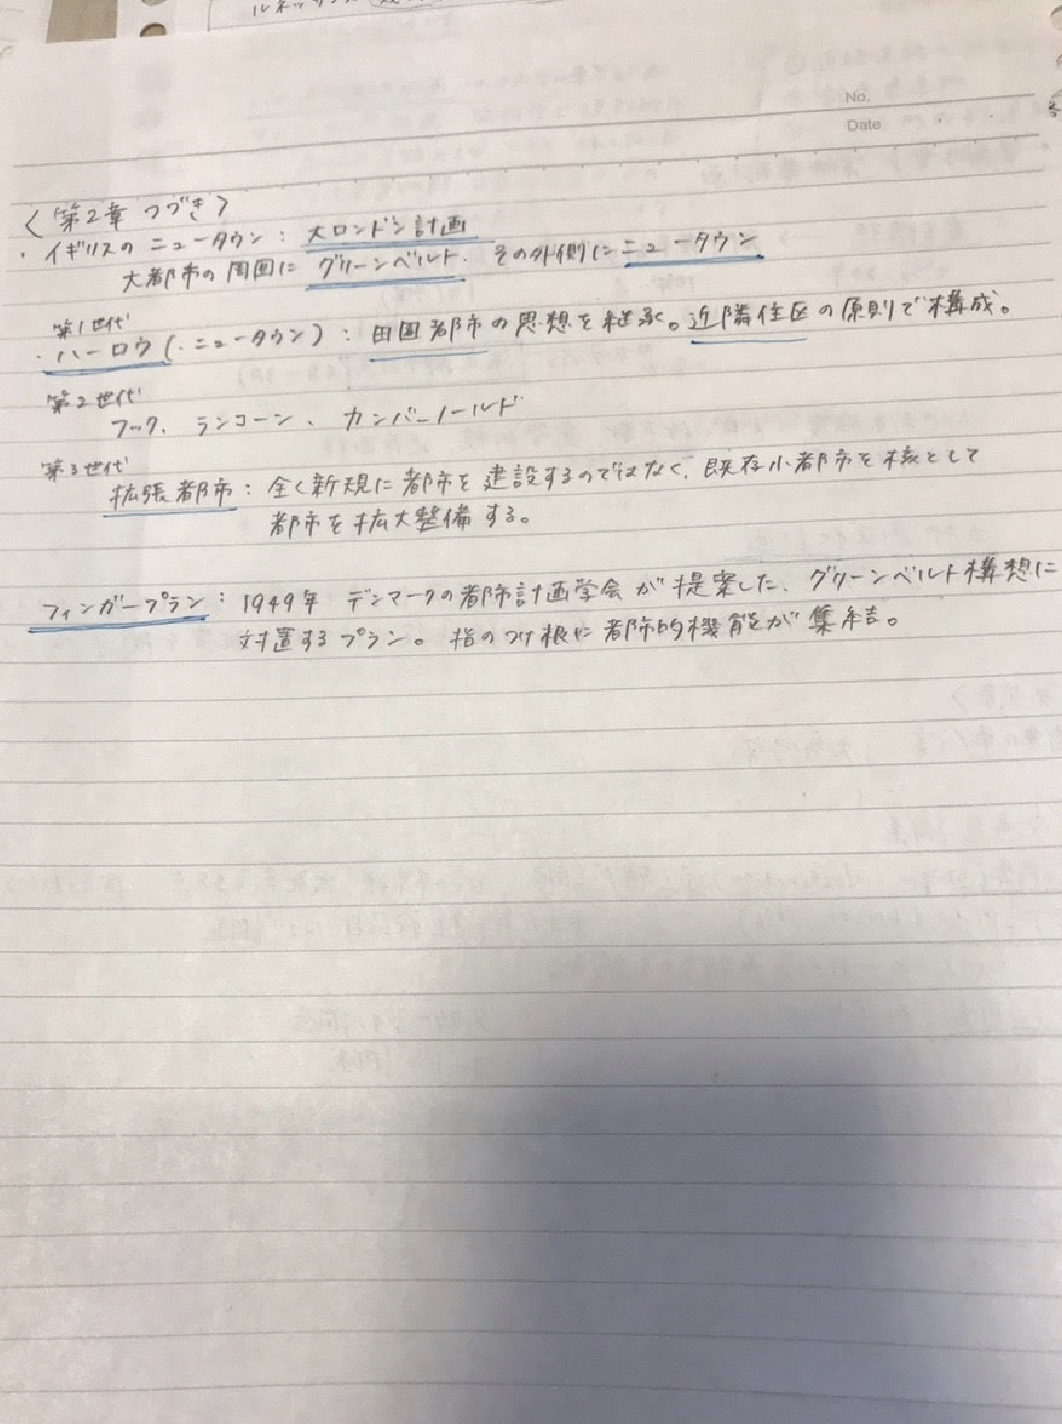 No.
Date
〈第2章 つづき〉
・イギリスの ニュータウン: 大ロンドン計画
大都市の周囲に グリーンベルト. その外側に ニュータウン
第1世代
・ハーロウ(・ニュータウン): 田園都市の思想を継承。近隣住区の原則で構成。
第2世代
フック、ランコーン、カンバーノールド
第3世代
拡張都市: 全く新規に都市を建設するのではなく、既存小都市を核として
都市を拡大整備する。
フィンガープラン: 1949年 デンマークの都市計画学会が提案した、グリーンベルト構想に
対置するプラン。指のつけ根に都市的機能が集結。